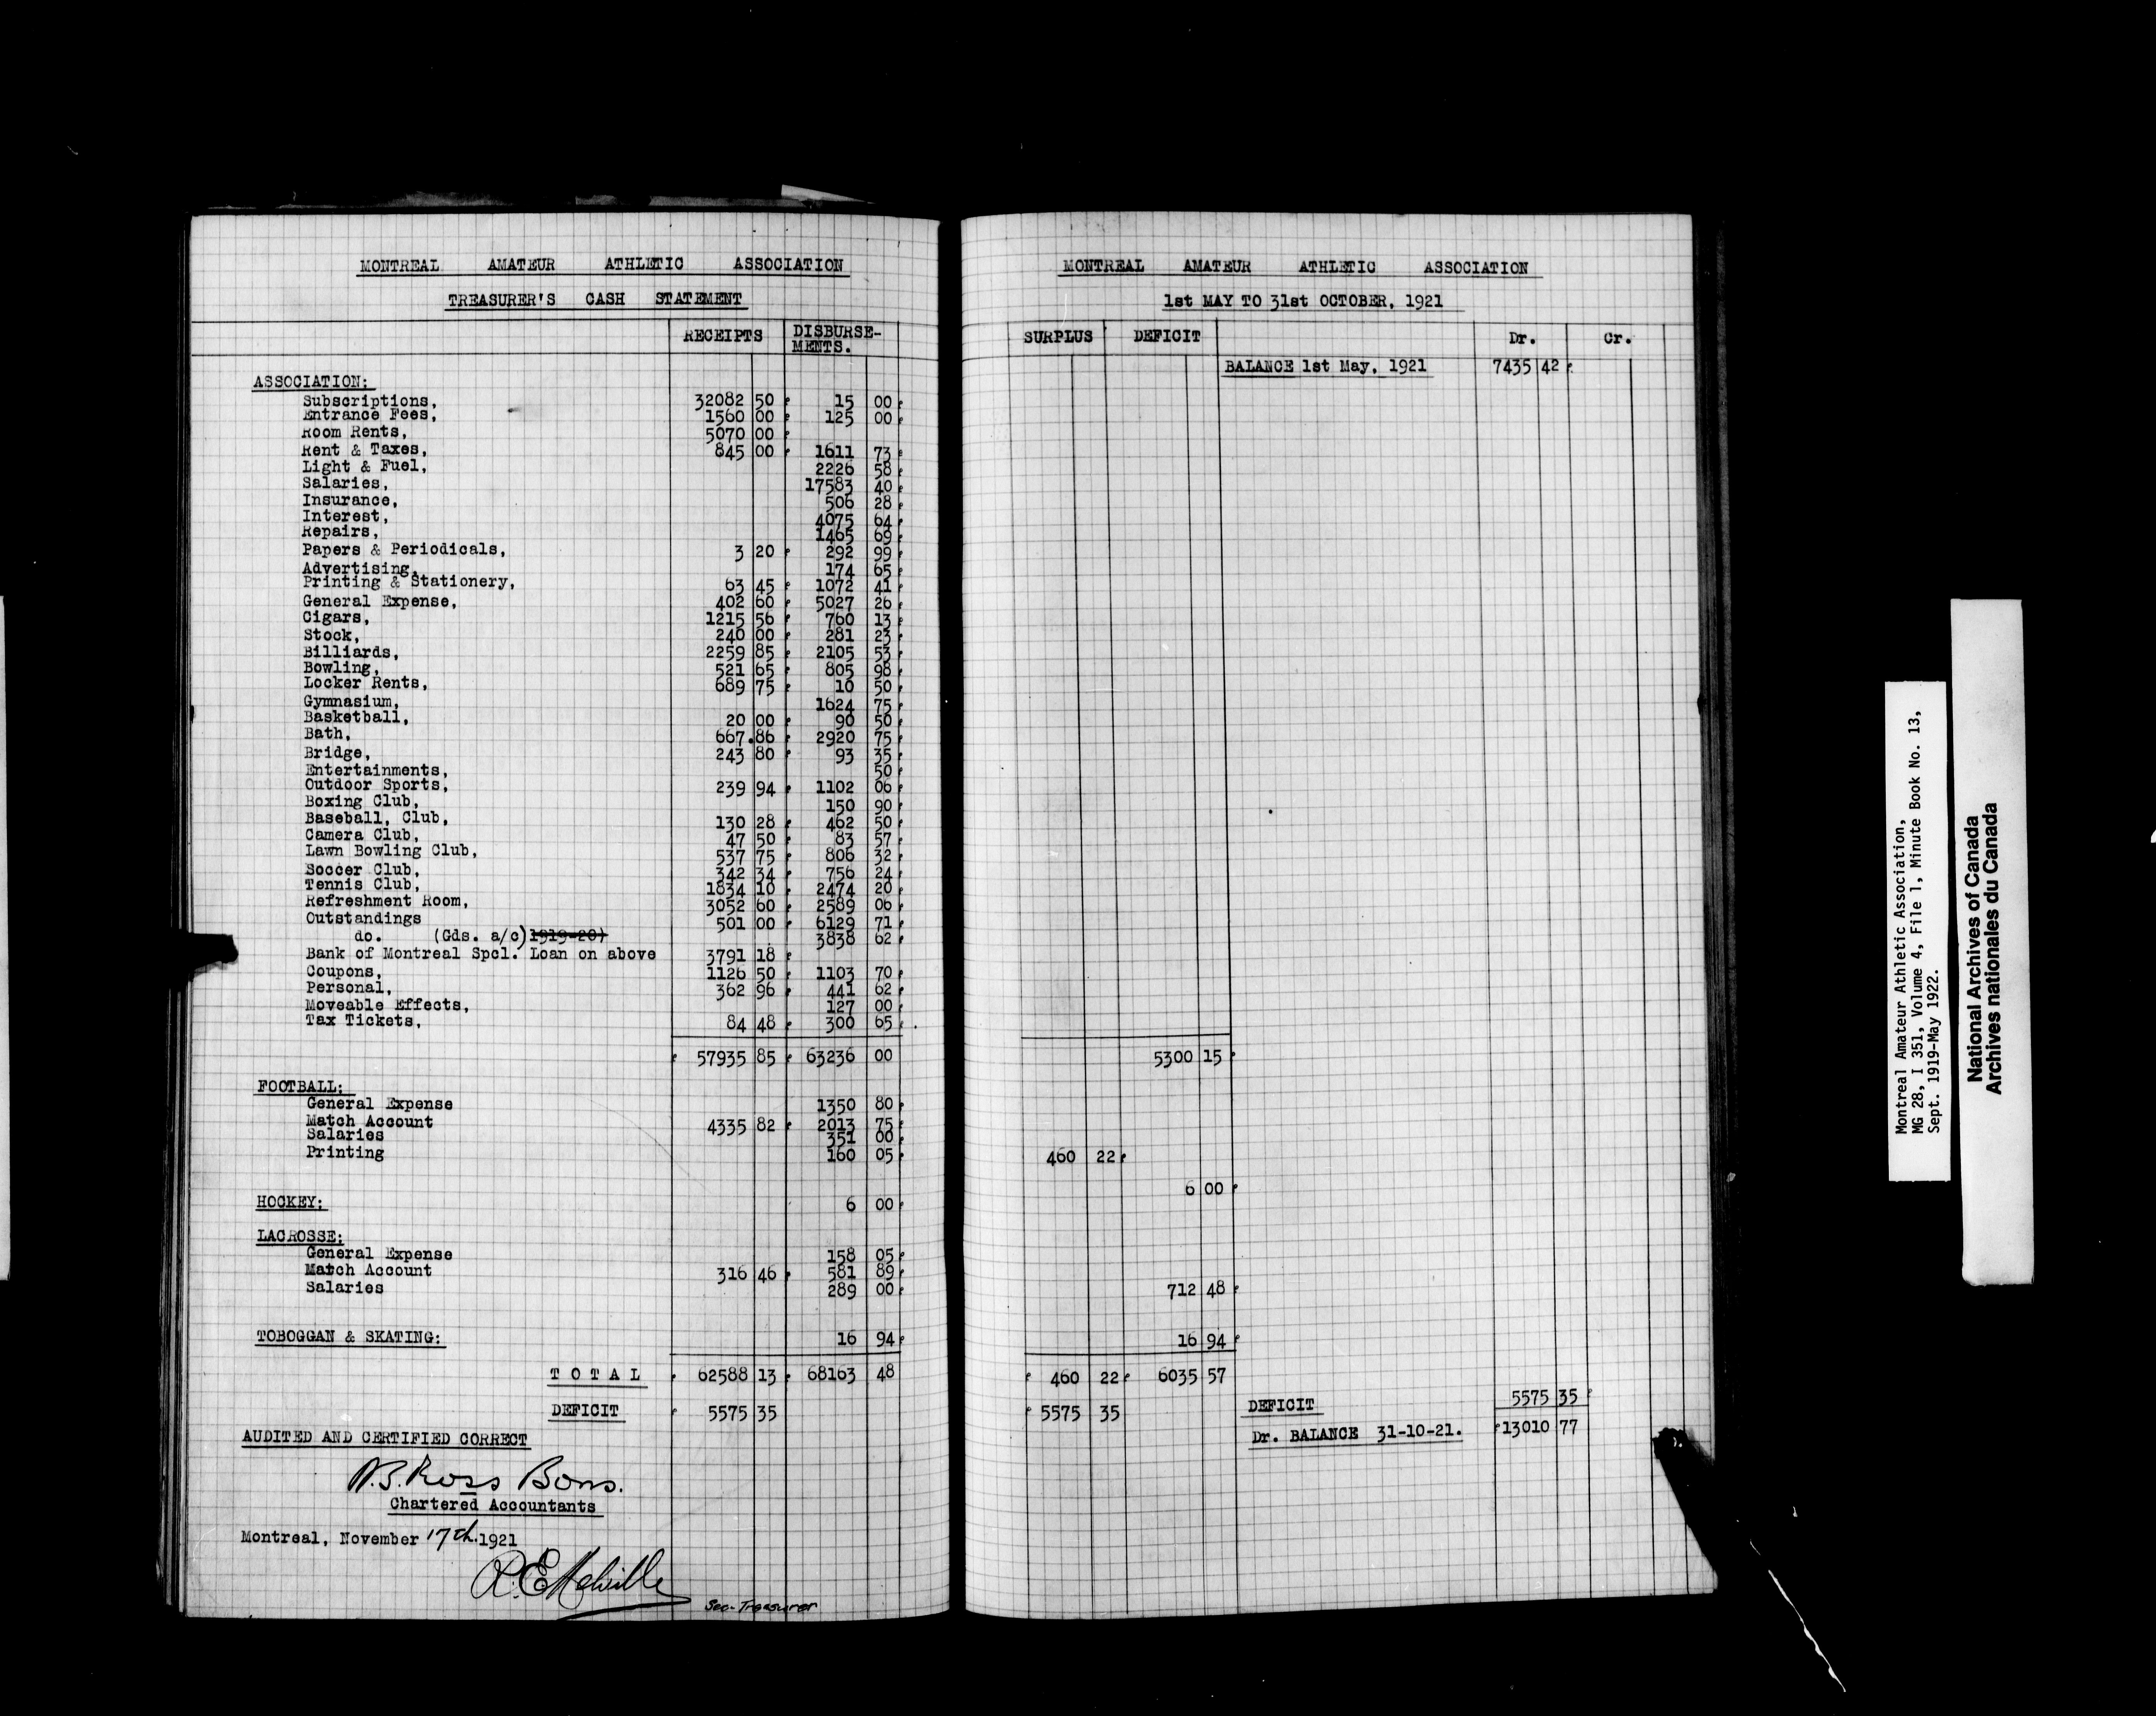 MONTREAL AMATEUR ATHLETIC ASSOCIATION
TREASURER'S CASH STATEMENT
RECEIPTS DISBURSE-
MENTS.
ASSOCIATION:
Subscriptions, 32082 50 15 00
Entrance Fees, 1560 00 125 00
Room Rents, 5070 00
Rent & Taxes, 845 00 1611 73
Light & Fuel, 2226 58
Salaries, 17583 40
Insurance, 506 28
Interest, 4075 64
Repairs, 1465 69
Papers & Periodicals, 3 20 292 99
Advertising, 174 65
Printing & Stationery, 63 45 1072 41
General Expense, 402 60 5027 26
Cigars, 1215 56 760 13
Stock, 240 00 281 23
Billiards, 2259 85 2105 53
Bowling, 521 65 805 98
Locker Rents, 689 75 10 50
Gymnasium, 1624 75
Basketball, 20 00 90 50
Bath, 667.86 2920 75
Bridge, 243 80 93 35
Entertainments, 50
Outdoor Sports, 239 94 1102 06
Boxing Club, 150 90
Baseball, Club, 130 28 462 50
Camera Club, 47 50 83 57
Lawn Bowling Club, 537 75 806 32
Soccer Club, 342 34 756 24
Tennis Club, 1834 10 2474 20
Refreshment Room, 3052 60 2589 06
Outstandings 501 00 6129 71
do. (Gds. a/c) 1919-20) 3838 62
Bank of Montreal Spcl. Loan on above 3791 18
Coupons, 1126 50 1103 70
Personal, 362 96 441 62
Moveable Effects, 127 00
Tax Tickets, 84 48 300 65
57935 85 63236 00
FOOTBALL:
General Expense 1350 80
Match Account 4335 82 2013 75
Salaries 351 00
Printing 160 05
HOCKEY: 6 00
LACROSSE:
General Expense 158 05
Match Account 316 46 581 89
Salaries 289 00
TOBOGGAN & SKATING: 16 94
TOTAL 62588 13 68163 48
DEFICIT 5575 35
AUDITED AND CERTIFIED CORRECT
Ross
Chartered Accountants
Montreal, November 17th. 1921
R.E. Melville
Sec-Treasurer
MONTREAL AMATEUR ATHLETIC ASSOCIATION
1st MAY TO 31st OCTOBER, 1921
SURPLUS DEFICIT Dr. Cr.
BALANCE 1st May, 1921 7435 42
5300 15
460 22
6 00
712 48
16 94
460 22 6035 57
DEFICIT 5575 35
5575 35
Dr. BALANCE 31-10-21. 13010 77
Montreal Amateur Athletic Association,
MG 28, I 351, Volume 4, File 1, Minute Book No. 13,
Sept. 1919-May 1922.
National Archives of Canada
Archives nationales du Canada